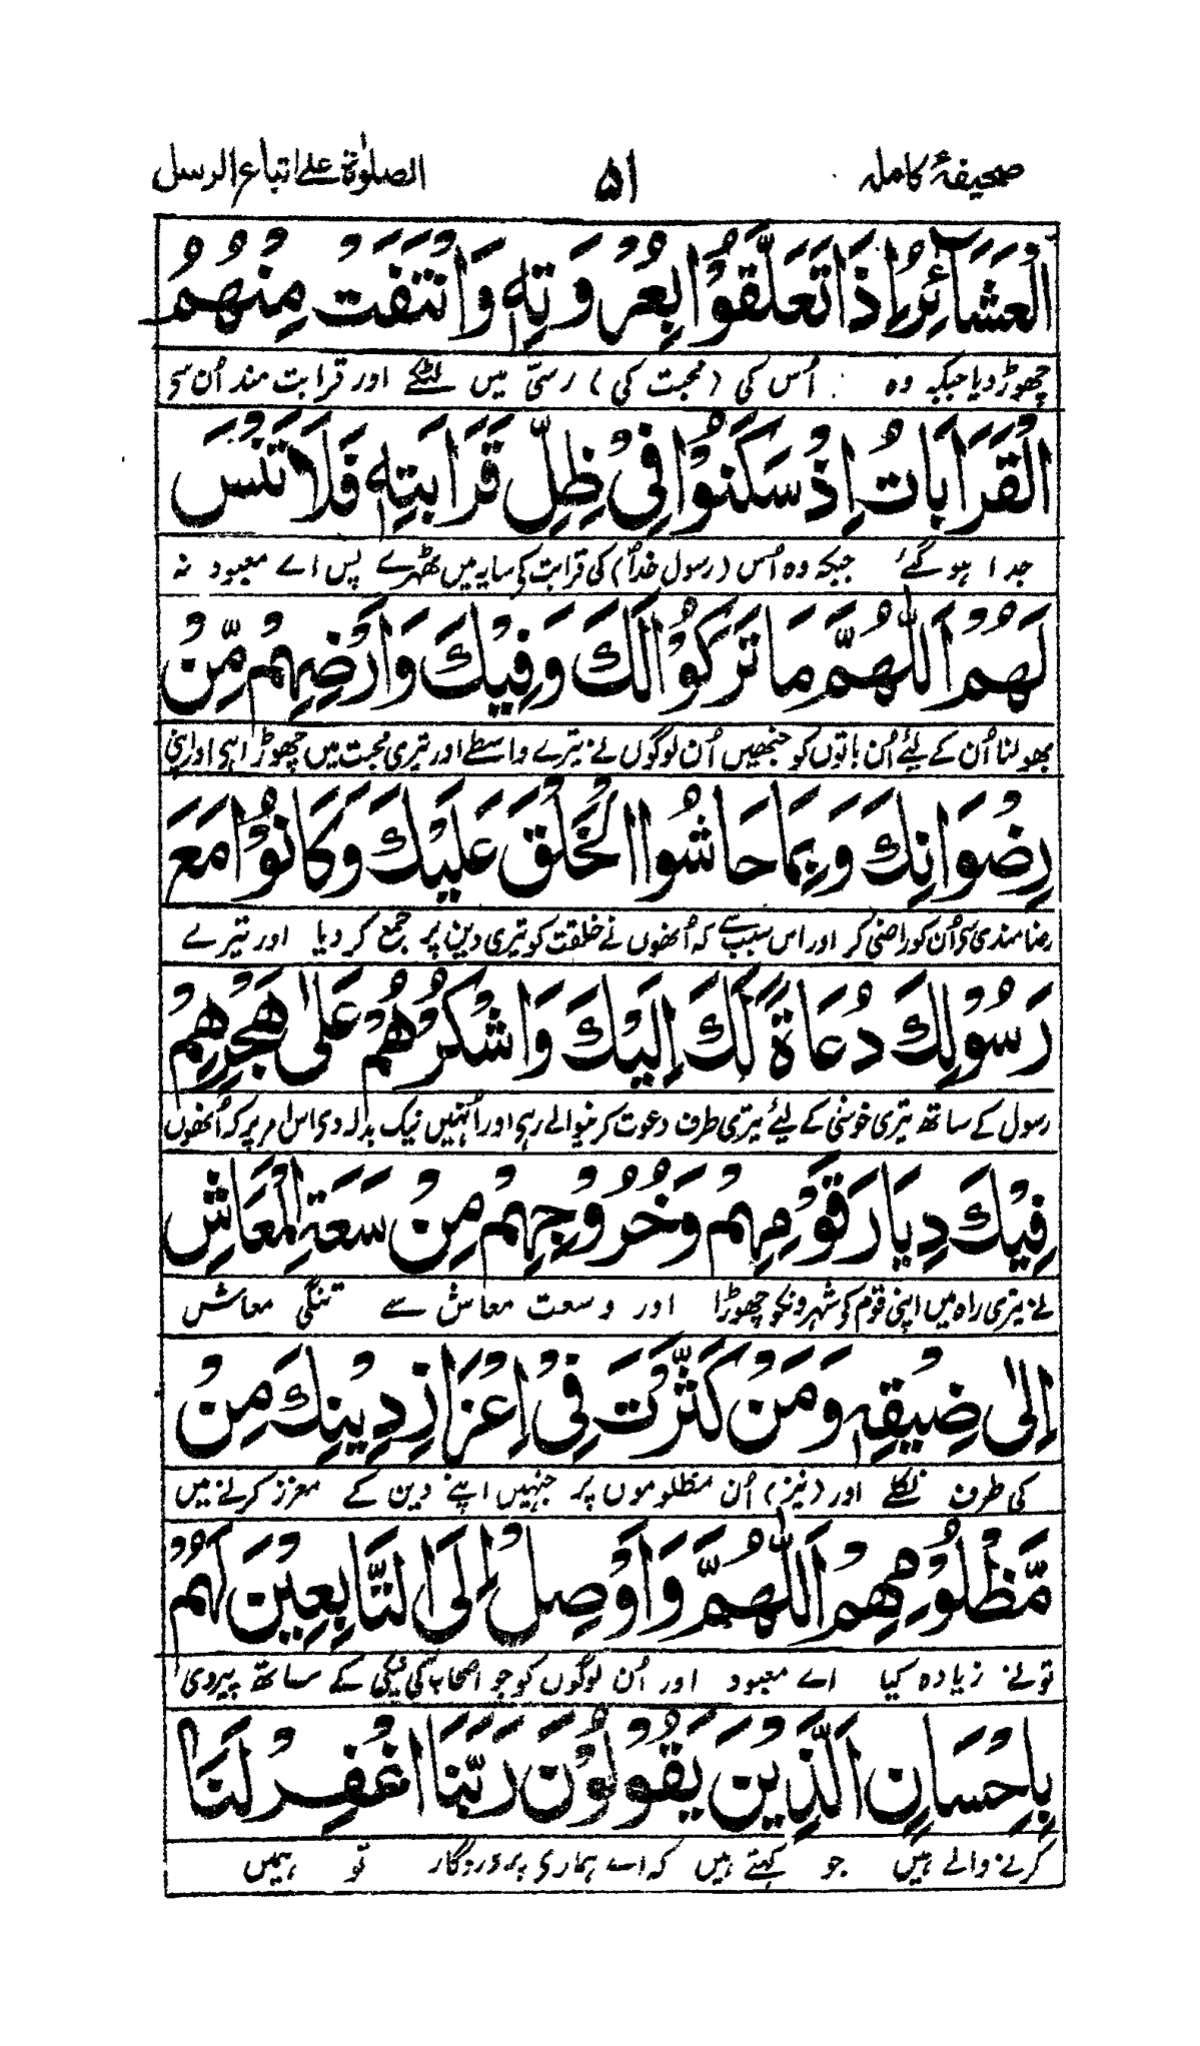 صحیفۂ کاملہ ۵۱ الصلوٰۃ علےٰ اتباع الرسل
الْعَشَآئِرُ اِذْ تَعَلَّقُوْا بِعُرْوَتِهٖ وَانْتَفَتْ مِنْهُمُ
چھوڑ دیا جبکہ وہ اُس کی (محبت کی) رسیّ میں لٹکے اور قرابت مند اُن سی
الْقَرَابَاتُ اِذْ سَكَنُوْا فِيْ ظِلِّ قَرَابَتِهٖ فَلَا تَنْسَ
جدا ہو گئے جبکہ وہ اُس (رسول خدا) کی قرابت کی سایہ میں ٹھہرے پس اے معبود نہ
لَهُمْ اَللّٰهُمَّ مَا تَرَكُوْا لَكَ وَفِيْكَ وَاَرْضِهِمْ مِّنْ
بھولنا اُن کے لئے اُن باتوں کو جنھیں اُن لوگوں نے تیرے واسطے اور تیری محبت میں چھوڑا ہی اور اپنی
رِضْوَانِكَ وَبِمَا حَاشُوا الْخَلْقَ عَلَيْكَ وَكَانُوْا مَعَ
رضا مندی سی اُن کو راضی کر اور اس سبب سے کہ اُنھوں نے خلقت کو تیری دین پر جمع کر دیا اور تیرے
رَسُوْلِكَ دُعَاةً لَّكَ اِلَيْكَ وَاشْكُرْهُمْ عَلٰى هَجْرِهِمْ
رسول کے ساتھ تیری خوشی کے لئے تیری طرف دعوت کرنیوالے رہی اور اُنہیں نیک بدلہ دی اس امر پر کہ اُنھوں
فِيْكَ دِيَارَ قَوْمِهِمْ وَخُرُوْجِهِمْ مِنْ سَعَةِ الْمَعَاشِ
نے تیری راہ میں اپنی قوم کو شہرونکو چھوڑا اور وسعت معاش سے تنگی معاش
اِلٰى ضِيْقِهٖ وَمَنْ كَثَّرْتَ فِيْ اِعْزَازِ دِيْنِكَ مِنْ
کی طرف نکلے اور (نیز) اُن مظلوموں پر جنہیں اپنے دین کے معزز کرنے میں
مَّظْلُوْمِهِمْ اَللّٰهُمَّ وَاَوْصِلْ اِلَى التَّابِعِيْنَ لَهُمْ
تونے زیادہ کیا اے معبود اور اُن لوگوں کو جو اصحاب کی نیکی کے ساتھ پیروی
بِاِحْسَانِ الَّذِيْنَ يَقُوْلُوْنَ رَبَّنَا اغْفِرْ لَنَا
کرنے والے ہیں جو کہتے ہیں کہ اے ہماری پروردگار تو ہمیں